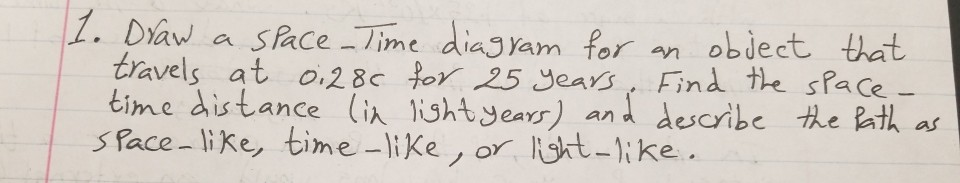 1. Draw a space-Time diagram for an object that
travels at 0.28c for 25 years. Find the space-
time distance (in light years) and describe the Path as
space-like, time-like, or light-like.